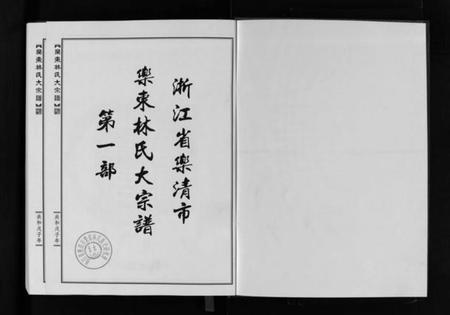 浙江省樂清市
樂東林氏大宗譜
第一部
【樂東林氏大宗譜】
【樂東林氏大宗譜】